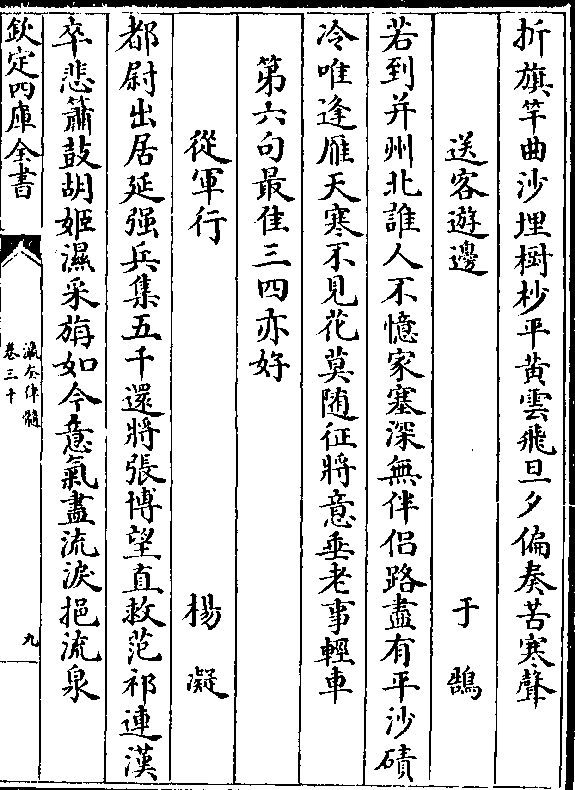 折旗竿曲沙埋樹杪平黄雲飛旦夕偏奏苦寒聲
送客遊邊　于鵠
若到并州北誰人不憶家塞深無伴侣路盡有平沙磧
冷唯逢雁天寒不見花莫随征將意垂老事輕車
第六句最佳三四亦好
從軍行　楊凝
都尉出居延强兵集五千還將張博望直救范祁連漢
卒悲簫鼓胡姬濕采旃如今意氣盡流淚挹流泉
欽定四庫全書
瀛奎律髓
卷三十
九